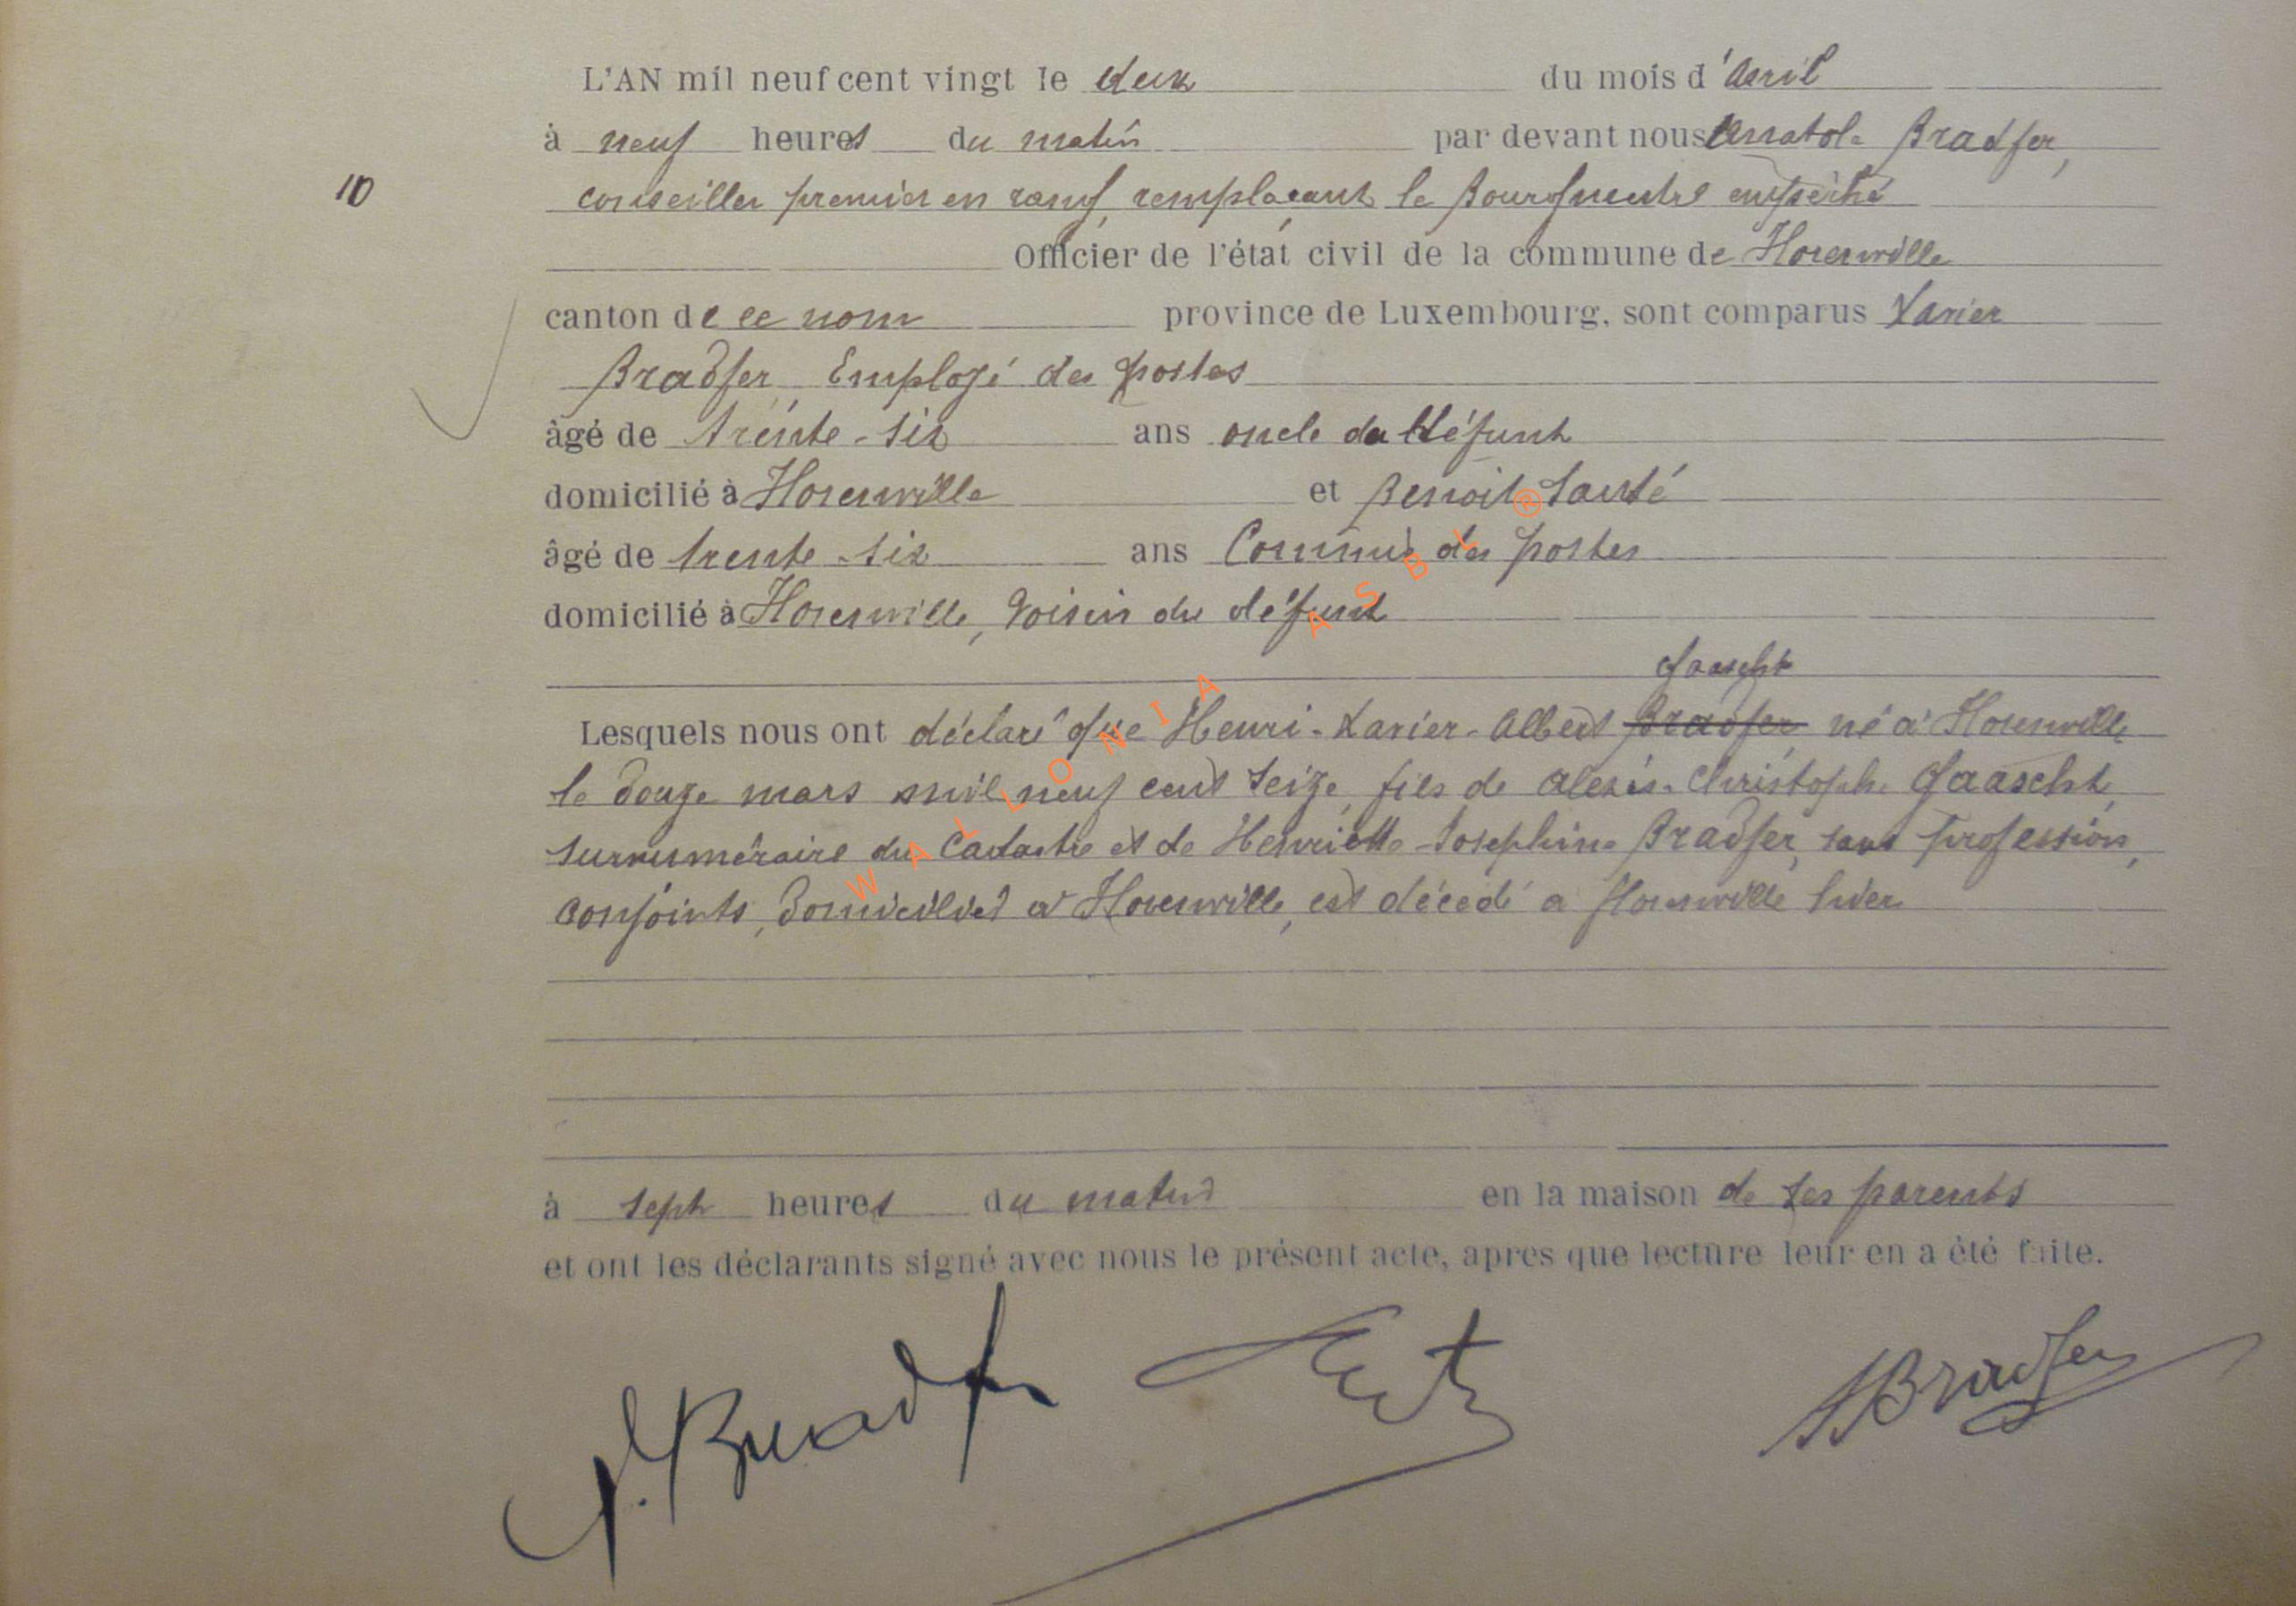 L'AN mil neuf cent vingt le deux du mois d'avril
à neuf heures du matin par devant nous Anatole Bradfer,
10 conseiller premier en rang, remplaçant le Bourgmestre empêché
Officier de l'état civil de la commune de Florenville
canton de ce nom province de Luxembourg, sont comparus Xavier
Bradfer, Employé des postes
âgé de trente-six ans oncle du défunt
domicilié à Florenville et Benoit
âgé de trente-six ans Commis des postes
domicilié à Florenville, voisin du défunt
Gaascht
Lesquels nous ont déclaré que Henri-Xavier-Albert Bradfer né à Florenville
le douze mars mil neuf cent seize, fils de Alexis-Christophe Gaascht,
surnuméraire du Cadastre et de Henriette-Josephine Bradfer, sans profession,
conjoints, domiciliés à Florenville, est décédé a Florenville hier
à sept heures du matin en la maison de ses parents
et ont les déclarants signé avec nous le présent acte, apres que lecture leur en a été faite.
Bradfer
Bradfer
WALLONIA ASBL ®